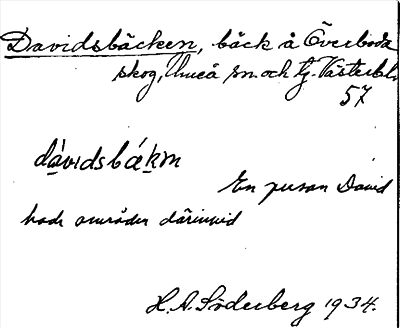 Davidsbäcken, bäck å Överboda
skog, Umeå sn. och tg. Västerb.l.
57
dávidsbækm
En person David
hade området därinvid
H. A. Söderberg 1934.